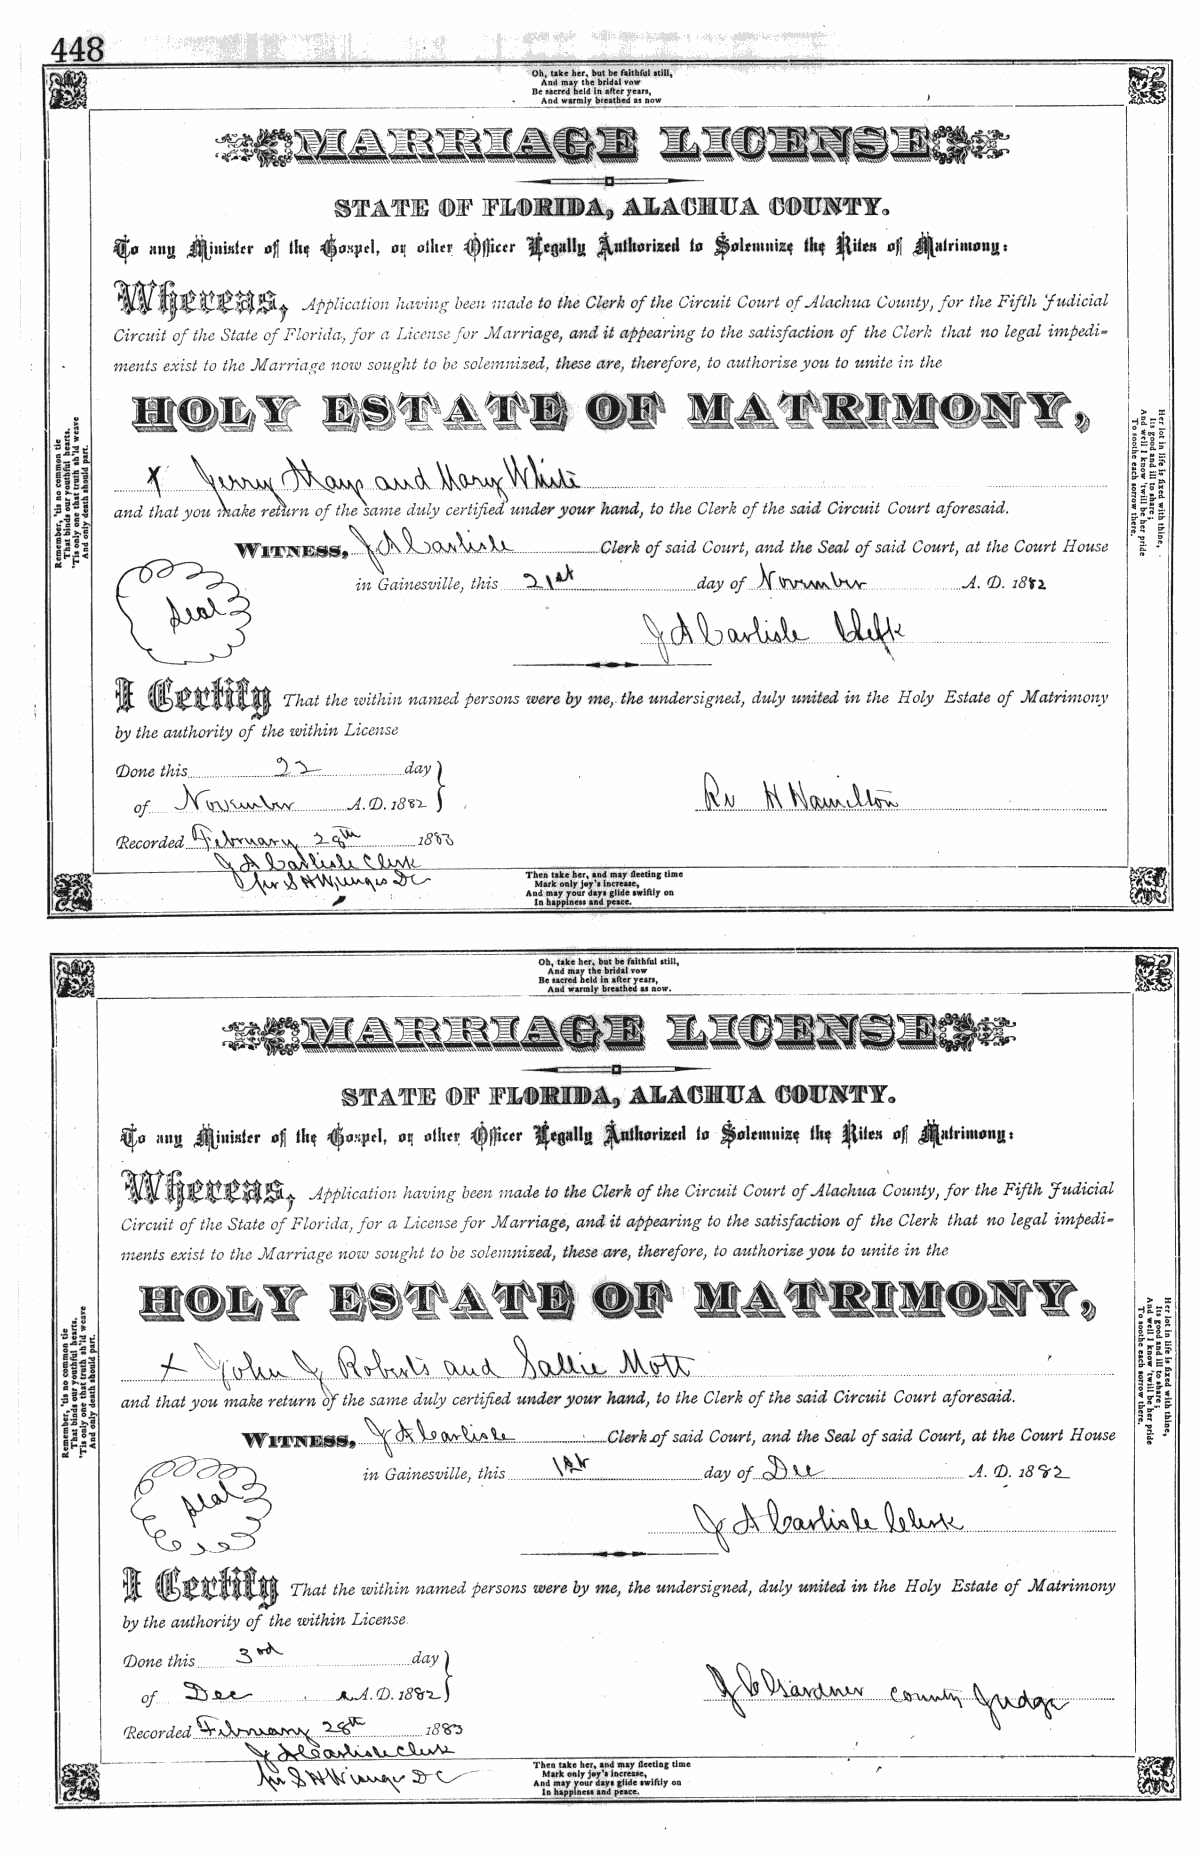 448
Oh, take her, but be faithful still,
And may the bridal vow
Be sacred held in after years,
And warmly breathed as now
MARRIAGE LICENSE
STATE OF FLORIDA, ALACHUA COUNTY.
To any Minister of the Gospel, or other Officer Legally Authorized to Solemnize the Rites of Matrimony:
Whereas, Application having been made to the Clerk of the Circuit Court of Alachua County, for the Fifth Judicial
Circuit of the State of Florida, for a License for Marriage, and it appearing to the satisfaction of the Clerk that no legal impedi-
ments exist to the Marriage now sought to be solemnized, these are, therefore, to authorize you to unite in the
HOLY ESTATE OF MATRIMONY,
x Jerry Mays and Mary White
and that you make return of the same duly certified under your hand, to the Clerk of the said Circuit Court aforesaid.
WITNESS, J A Carlisle Clerk of said Court, and the Seal of said Court, at the Court House
in Gainesville, this 21st day of November A. D. 1882
Seal
J A Carlisle Clerk
I Certify That the within named persons were by me, the undersigned, duly united in the Holy Estate of Matrimony
by the authority of the within License
Done this 22 day
of November A. D. 1882
Rv H Hamilton
Recorded February 28th 1883
J A Carlisle Clerk
per S H DC
Remember, 'tis no common tie
That binds our youthful hearts,
'Tis only one that truth sh'ld weave
And only death should part.
Her lot in life is fixed with thine,
Its good and ill to share;
And well I know 'twill be her pride
To soothe each sorrow there.
Then take her, and may fleeting time
Mark only joy's increase,
And may your days glide swiftly on
In happiness and peace.
Oh, take her, but be faithful still,
And may the bridal vow
Be sacred held in after years,
And warmly breathed as now.
MARRIAGE LICENSE
STATE OF FLORIDA, ALACHUA COUNTY.
To any Minister of the Gospel, or other Officer Legally Authorized to Solemnize the Rites of Matrimony:
Whereas, Application having been made to the Clerk of the Circuit Court of Alachua County, for the Fifth Judicial
Circuit of the State of Florida, for a License for Marriage, and it appearing to the satisfaction of the Clerk that no legal impedi-
ments exist to the Marriage now sought to be solemnized, these are, therefore, to authorize you to unite in the
HOLY ESTATE OF MATRIMONY,
x John J Roberts and Sallie Mott
and that you make return of the same duly certified under your hand, to the Clerk of the said Circuit Court aforesaid.
WITNESS, J A Carlisle Clerk of said Court, and the Seal of said Court, at the Court House
in Gainesville, this 1st day of Dec A. D. 1882
Seal
J A Carlisle Clerk
I Certify That the within named persons were by me, the undersigned, duly united in the Holy Estate of Matrimony
by the authority of the within License
Done this 3rd day
of Dec A. D. 1882
J C Gardner County Judge
Recorded February 28th 1883
J A Carlisle Clerk
per S H DC
Remember, 'tis no common tie
That binds our youthful hearts,
'Tis only one that truth sh'ld weave
And only death should part.
Her lot in life is fixed with thine,
Its good and ill to share;
And well I know 'twill be her pride
To soothe each sorrow there.
Then take her, and may fleeting time
Mark only joy's increase,
And may your days glide swiftly on
In happiness and peace.